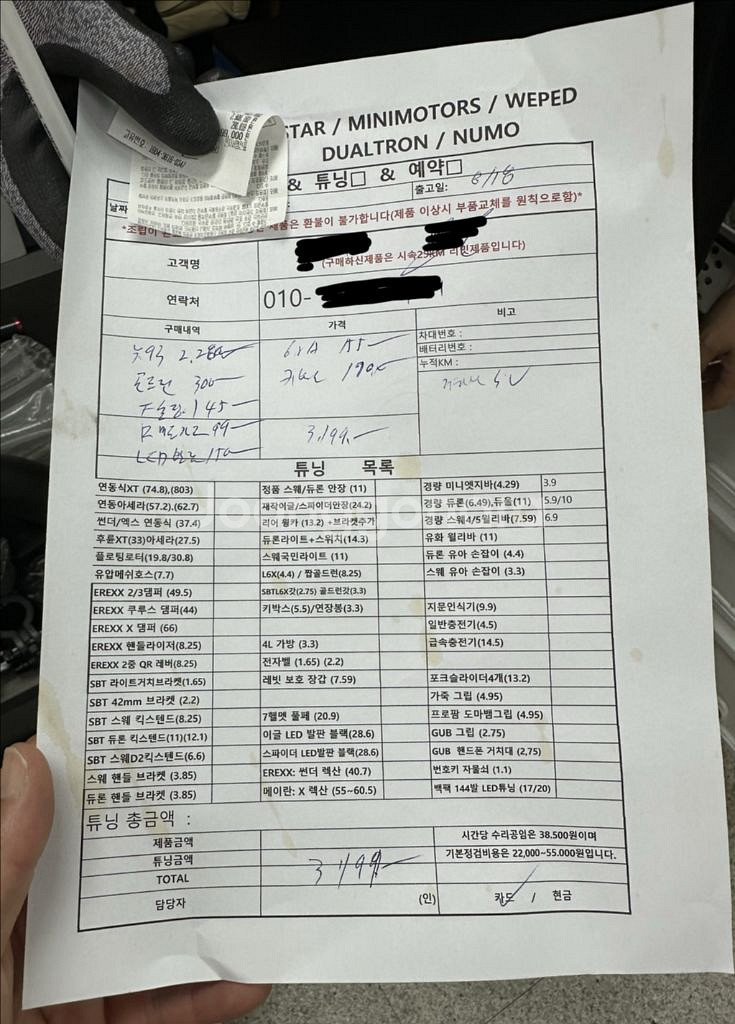 STAR / MINIMOTORS / WEPED
DUALTRON / NUMO
& 튜닝□ & 예약□
고유번호 :
날짜
출고일: 8/18
제품은 환불이 불가합니다(제품 이상시 부품교체를 원칙으로함)*
고객명
(구매하신제품은 시속25KM 리밋제품입니다)
연락처 010-
구매내역 가격 비고
차대번호 :
배터리번호 :
누적KM :
300
145
99
150
3,199.
튜닝 목록
연동식XT (74.8),(803) 정품 스웨/듀론 안장 (11) 경량 미니엣지바(4.29) 3.9
연동아세라(57.2).(62.7) 재작이글/스파이더안장(24.2) 경량 듀론(6.49),듀울(11) 5.9/10
썬더/엑스 연동식 (37.4) 리어 윙카 (13.2) +브라켓추가 경량 스웨4/5윌리바(7.59) 6.9
후륜XT(33)아세라(27.5) 듀론라이트+스위치(14.3) 유화 윌리바 (11)
플로팅로터(19.8/30.8) 스웨국민라이트 (11) 듀론 유아 손잡이 (4.4)
유압메쉬호스(7.7) L6X(4.4) / 짭골드런(8.25) 스웨 유아 손잡이 (3.3)
EREXX 2/3댐퍼 (49.5) SBTL6X갓(2.75) 골드런갓(3.3)
EREXX 쿠루스 댐퍼(44) 키박스(5.5)/연장봉(3.3) 지문인식기(9.9)
EREXX X 댐퍼 (66) 일반충전기(4.5)
EREXX 핸들라이저(8.25) 4L 가방 (3.3) 급속충전기(14.5)
EREXX 2중 QR 레버(8.25) 전자벨 (1.65) (2.2)
SBT 라이트거치브라켓(1.65) 레빗 보호 장갑 (7.59) 포크슬라이더4개(13.2)
SBT 42mm 브라켓 (2.2) 가죽 그립 (4.95)
SBT 스웨 킥스텐드(8.25) 7헬멧 풀페 (20.9) 프로팜 도마뱀그립 (4.95)
SBT 듀론 킥스텐드(11)(12.1) 이글 LED 발판 블랙(28.6) GUB 그립 (2.75)
SBT 스웨D2킥스텐드(6.6) 스파이더 LED발판 블랙(28.6) GUB 핸드폰 거치대 (2,75)
스웨 핸들 브라켓 (3.85) EREXX: 썬더 렉산 (40.7) 번호키 자물쇠 (1.1)
듀론 핸들 브라켓 (3.85) 메이란: X 렉산 (55~60.5) 백팩 144발 LED튜닝 (17/20)
튜닝 총금액 :
제품금액 시간당 수리공임은 38.500원이며
튜닝금액 기본정검비용은 22,000~55.000원입니다.
TOTAL 3,199
담당자 (인) 카드 / 현금